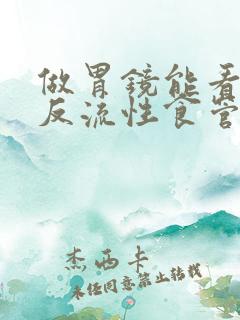 做胃镜能看
反流性食管
杰西卡
未经同意禁止转载